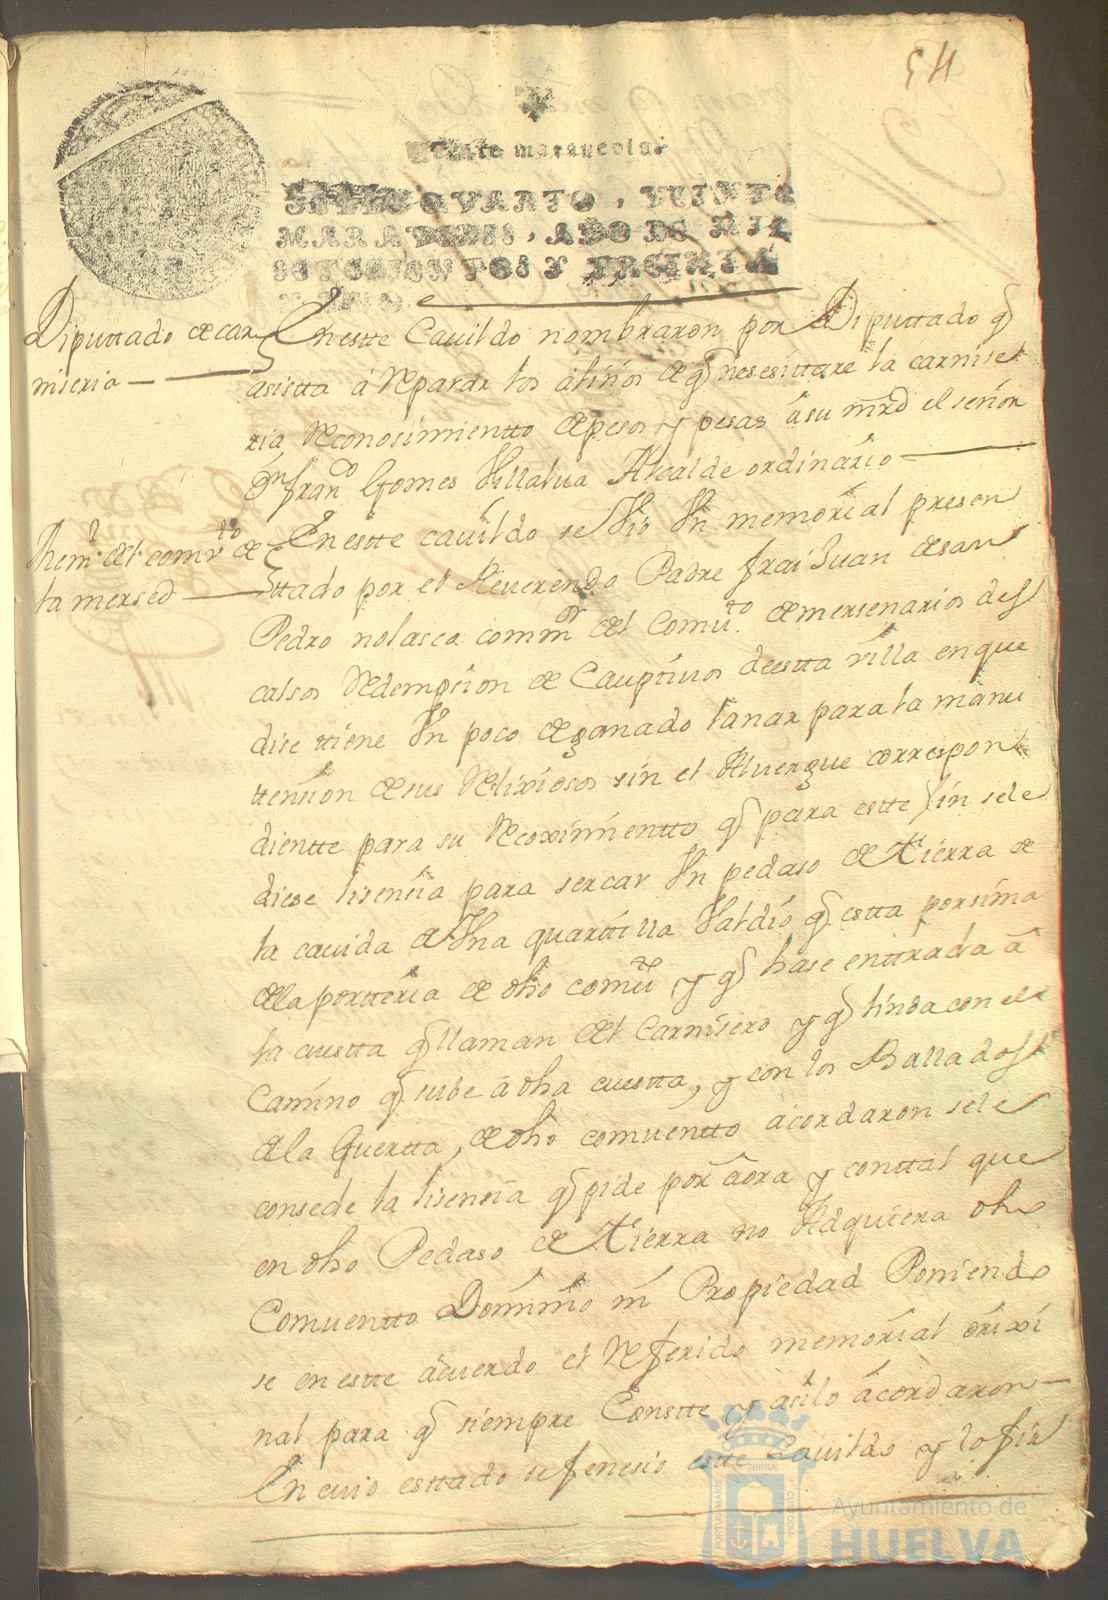 54
Veinte maravedis
SELLO QVARTO, VEINTE
MARAVEDIS, AÑO DE MIL
SETECIENTOS Y TREINTA
Y UNO.
Diputtado de car
miseria
En estte Cavildo nombraron por Diputtado q̄
asistta â Reparar los aliños de q̄ nesesittare la carnise
ria Reconosimientto de pesos y pesas â su mrd el señor
Dn franco Gomes Villalua Alcalde ordinario
Mem.l del comv.to de
la mersed
En estte cavildo se Vio Vn memorial presen
ttado por el Reuerendo Padre frai Juan de san
Pedro nolasca commor del Comu.to de mersenarios des
calsos Redempsion de Cauptiuos de estta villa en que
dise ttiene Vn poco de ganado lanar para la manu
ttension de sus Relixiosos sin el Aluergue correspon
dientte para su Recoximientto q̄ para estte fin se le
diese lisensia para sercar Vn pedaso de ttierra de
la cauida de Vna quarttilla Valdio q̄ estta por sima
de la portteria de dho comuto y q̄ hase enttrada â
la cuestta q̄ llaman del Carnisero y q̄ linda con el
Camino q̄ sube â dha cuestta, y con los Ballados
de la Huertta, de dho comuentto acordaron se le
consede la lisensia q̄ pide por aora y conttal que
en dho Pedaso de ttierra no Adquiera dho
Comuentto Dominio ni Propiedad Poniendo
se en estte acuerdo el Referido memorial orixi
nal para q̄ siempre Constte y asilo acordaron
En cuio esttado se fenesio estte Cavildo y lo fir
Ayuntamiento de
HUELVA